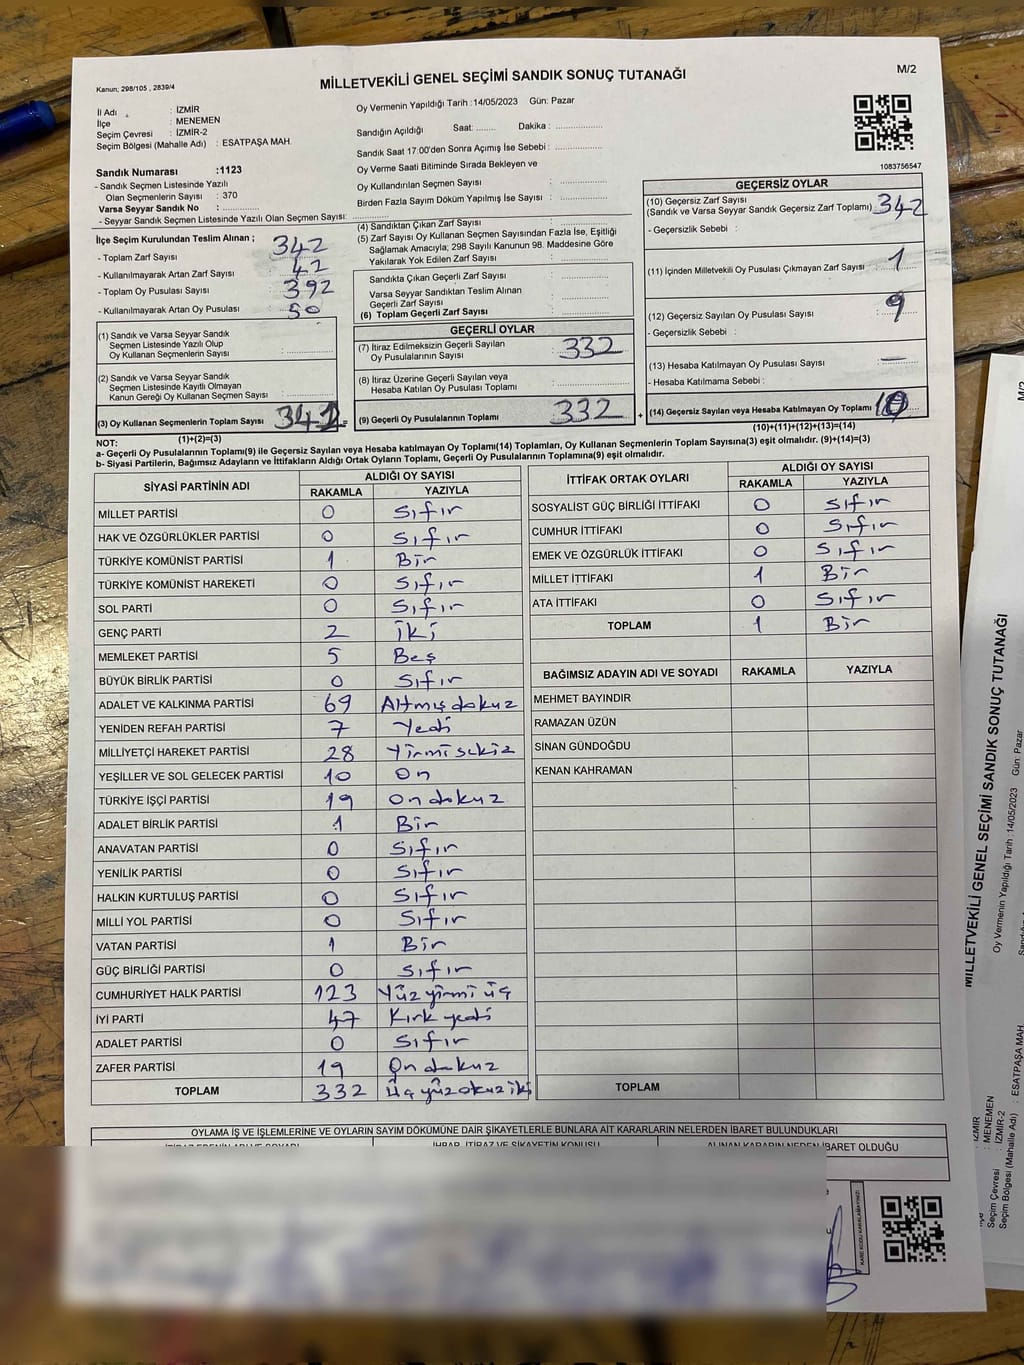 MİLLETVEKİLİ GENEL SEÇİMİ SANDIK SONUÇ TUTANAĞI
M/2
Kanun; 298/105 , 2839/4
İl Adı : İZMİR
İlçe : MENEMEN
Seçim Çevresi : İZMİR-2
Seçim Bölgesi (Mahalle Adı) : ESATPAŞA MAH.
Oy Vermenin Yapıldığı Tarih :14/05/2023 Gün: Pazar
Sandığın Açıldığı Saat: ........ Dakika : ..................
Sandık Saat 17:00'den Sonra Açımış İse Sebebi : ..................
Oy Verme Saati Bitiminde Sırada Bekleyen ve
Oy Kullandırılan Seçmen Sayısı : ..................
Birden Fazla Sayım Döküm Yapılmış İse Sayısı : ..................
1083756547
Sandık Numarası :1123
- Sandık Seçmen Listesinde Yazılı
Olan Seçmenlerin Sayısı : 370
Varsa Seyyar Sandık No : ..................
- Seyyar Sandık Seçmen Listesinde Yazılı Olan Seçmen Sayısı: ..................
İlçe Seçim Kurulundan Teslim Alınan ;
- Toplam Zarf Sayısı 342
- Kullanılmayarak Artan Zarf Sayısı 42
- Toplam Oy Pusulası Sayısı 392
- Kullanılmayarak Artan Oy Pusulası 50
(1) Sandık ve Varsa Seyyar Sandık
Seçmen Listesinde Yazılı Olup
Oy Kullanan Seçmenlerin Sayısı : ..................
(2) Sandık ve Varsa Seyyar Sandık
Seçmen Listesinde Kayıtlı Olmayan
Kanun Gereği Oy Kullanan Seçmen Sayısı : ..................
(3) Oy Kullanan Seçmenlerin Toplam Sayısı =
(1)+(2)=(3)
(4) Sandıktan Çıkan Zarf Sayısı : ..................
(5) Zarf Sayısı Oy Kullanan Seçmen Sayısından Fazla İse, Eşitliği
Sağlamak Amacıyla; 298 Sayılı Kanunun 98. Maddesine Göre
Yakılarak Yok Edilen Zarf Sayısı : ..................
Sandıkta Çıkan Geçerli Zarf Sayısı : ..................
Varsa Seyyar Sandıktan Teslim Alınan
Geçerli Zarf Sayısı : ..................
(6) Toplam Geçerli Zarf Sayısı : ..................
GEÇERLİ OYLAR
(7) İtiraz Edilmeksizin Geçerli Sayılan
Oy Pusulalarının Sayısı : 332
(8) İtiraz Üzerine Geçerli Sayılan veya
Hesaba Katılan Oy Pusulası Toplamı : ..................
(9) Geçerli Oy Pusulalarının Toplamı 332 +
GEÇERSİZ OYLAR
(10) Geçersiz Zarf Sayısı
(Sandık ve Varsa Seyyar Sandık Geçersiz Zarf Toplamı) 342
- Geçersizlik Sebebi :
(11) İçinden Milletvekili Oy Pusulası Çıkmayan Zarf Sayısı 1
(12) Geçersiz Sayılan Oy Pusulası Sayısı : 9
- Geçersizlik Sebebi :
(13) Hesaba Katılmayan Oy Pusulası Sayısı : —
- Hesaba Katılmama Sebebi :
(14) Geçersiz Sayılan veya Hesaba Katılmayan Oy Toplamı
(10)+(11)+(12)+(13)=(14)
NOT:
a- Geçerli Oy Pusulalarının Toplamı(9) ile Geçersiz Sayılan veya Hesaba katılmayan Oy Toplamı(14) Toplamları, Oy Kullanan Seçmenlerin Toplam Sayısına(3) eşit olmalıdır. (9)+(14)=(3)
b- Siyasi Partilerin, Bağımsız Adayların ve İttifakların Aldığı Ortak Oyların Toplamı, Geçerli Oy Pusulalarının Toplamına(9) eşit olmalıdır.
SİYASİ PARTİNİN ADI ALDIĞI OY SAYISI
RAKAMLA YAZIYLA
MİLLET PARTİSİ 0 Sıfır
HAK VE ÖZGÜRLÜKLER PARTİSİ 0 Sıfır
TÜRKİYE KOMÜNİST PARTİSİ 1 Bir
TÜRKİYE KOMÜNİST HAREKETİ 0 Sıfır
SOL PARTİ 0 Sıfır
GENÇ PARTİ 2 İki
MEMLEKET PARTİSİ 5 Beş
BÜYÜK BİRLİK PARTİSİ 0 Sıfır
ADALET VE KALKINMA PARTİSİ 69 Altmışdokuz
YENİDEN REFAH PARTİSİ 7 Yedi
MİLLİYETÇİ HAREKET PARTİSİ 28 Yirmisekiz
YEŞİLLER VE SOL GELECEK PARTİSİ 10 On
TÜRKİYE İŞÇİ PARTİSİ 19 On dokuz
ADALET BİRLİK PARTİSİ 1 Bir
ANAVATAN PARTİSİ 0 Sıfır
YENİLİK PARTİSİ 0 Sıfır
HALKIN KURTULUŞ PARTİSİ 0 Sıfır
MİLLİ YOL PARTİSİ 0 Sıfır
VATAN PARTİSİ 1 Bir
GÜÇ BİRLİĞİ PARTİSİ 0 Sıfır
CUMHURİYET HALK PARTİSİ 123 Yüz yirmi üç
İYİ PARTİ 47 Kırk yedi
ADALET PARTİSİ 0 Sıfır
ZAFER PARTİSİ 19 On dokuz
TOPLAM 332 Üç yüz otuz iki
İTTİFAK ORTAK OYLARI ALDIĞI OY SAYISI
RAKAMLA YAZIYLA
SOSYALİST GÜÇ BİRLİĞİ İTTİFAKI 0 Sıfır
CUMHUR İTTİFAKI 0 Sıfır
EMEK VE ÖZGÜRLÜK İTTİFAKI 0 Sıfır
MİLLET İTTİFAKI 1 Bir
ATA İTTİFAKI 0 Sıfır
TOPLAM 1 Bir
BAĞIMSIZ ADAYIN ADI VE SOYADI RAKAMLA YAZIYLA
MEHMET BAYINDIR
RAMAZAN ÜZÜN
SİNAN GÜNDOĞDU
KENAN KAHRAMAN
TOPLAM
OYLAMA İŞ VE İŞLEMLERİNE VE OYLARIN SAYIM DÖKÜMÜNE DAİR ŞİKAYETLERLE BUNLARA AİT KARARLARIN NELERDEN İBARET BULUNDUKLARI
İHBAR, İTİRAZ VE ŞİKAYETİN KONUSU ALINAN KARARIN NEDEN İBARET OLDUĞU
M/2
MİLLETVEKİLİ GENEL SEÇİMİ SANDIK SONUÇ TUTANAĞI
Oy Vermenin Yapıldığı Tarih :14/05/2023 Gün: Pazar
: İZMİR
: MENEMEN
Seçim Çevresi : İZMİR-2
Seçim Bölgesi (Mahalle Adı) : ESATPAŞA MAH.